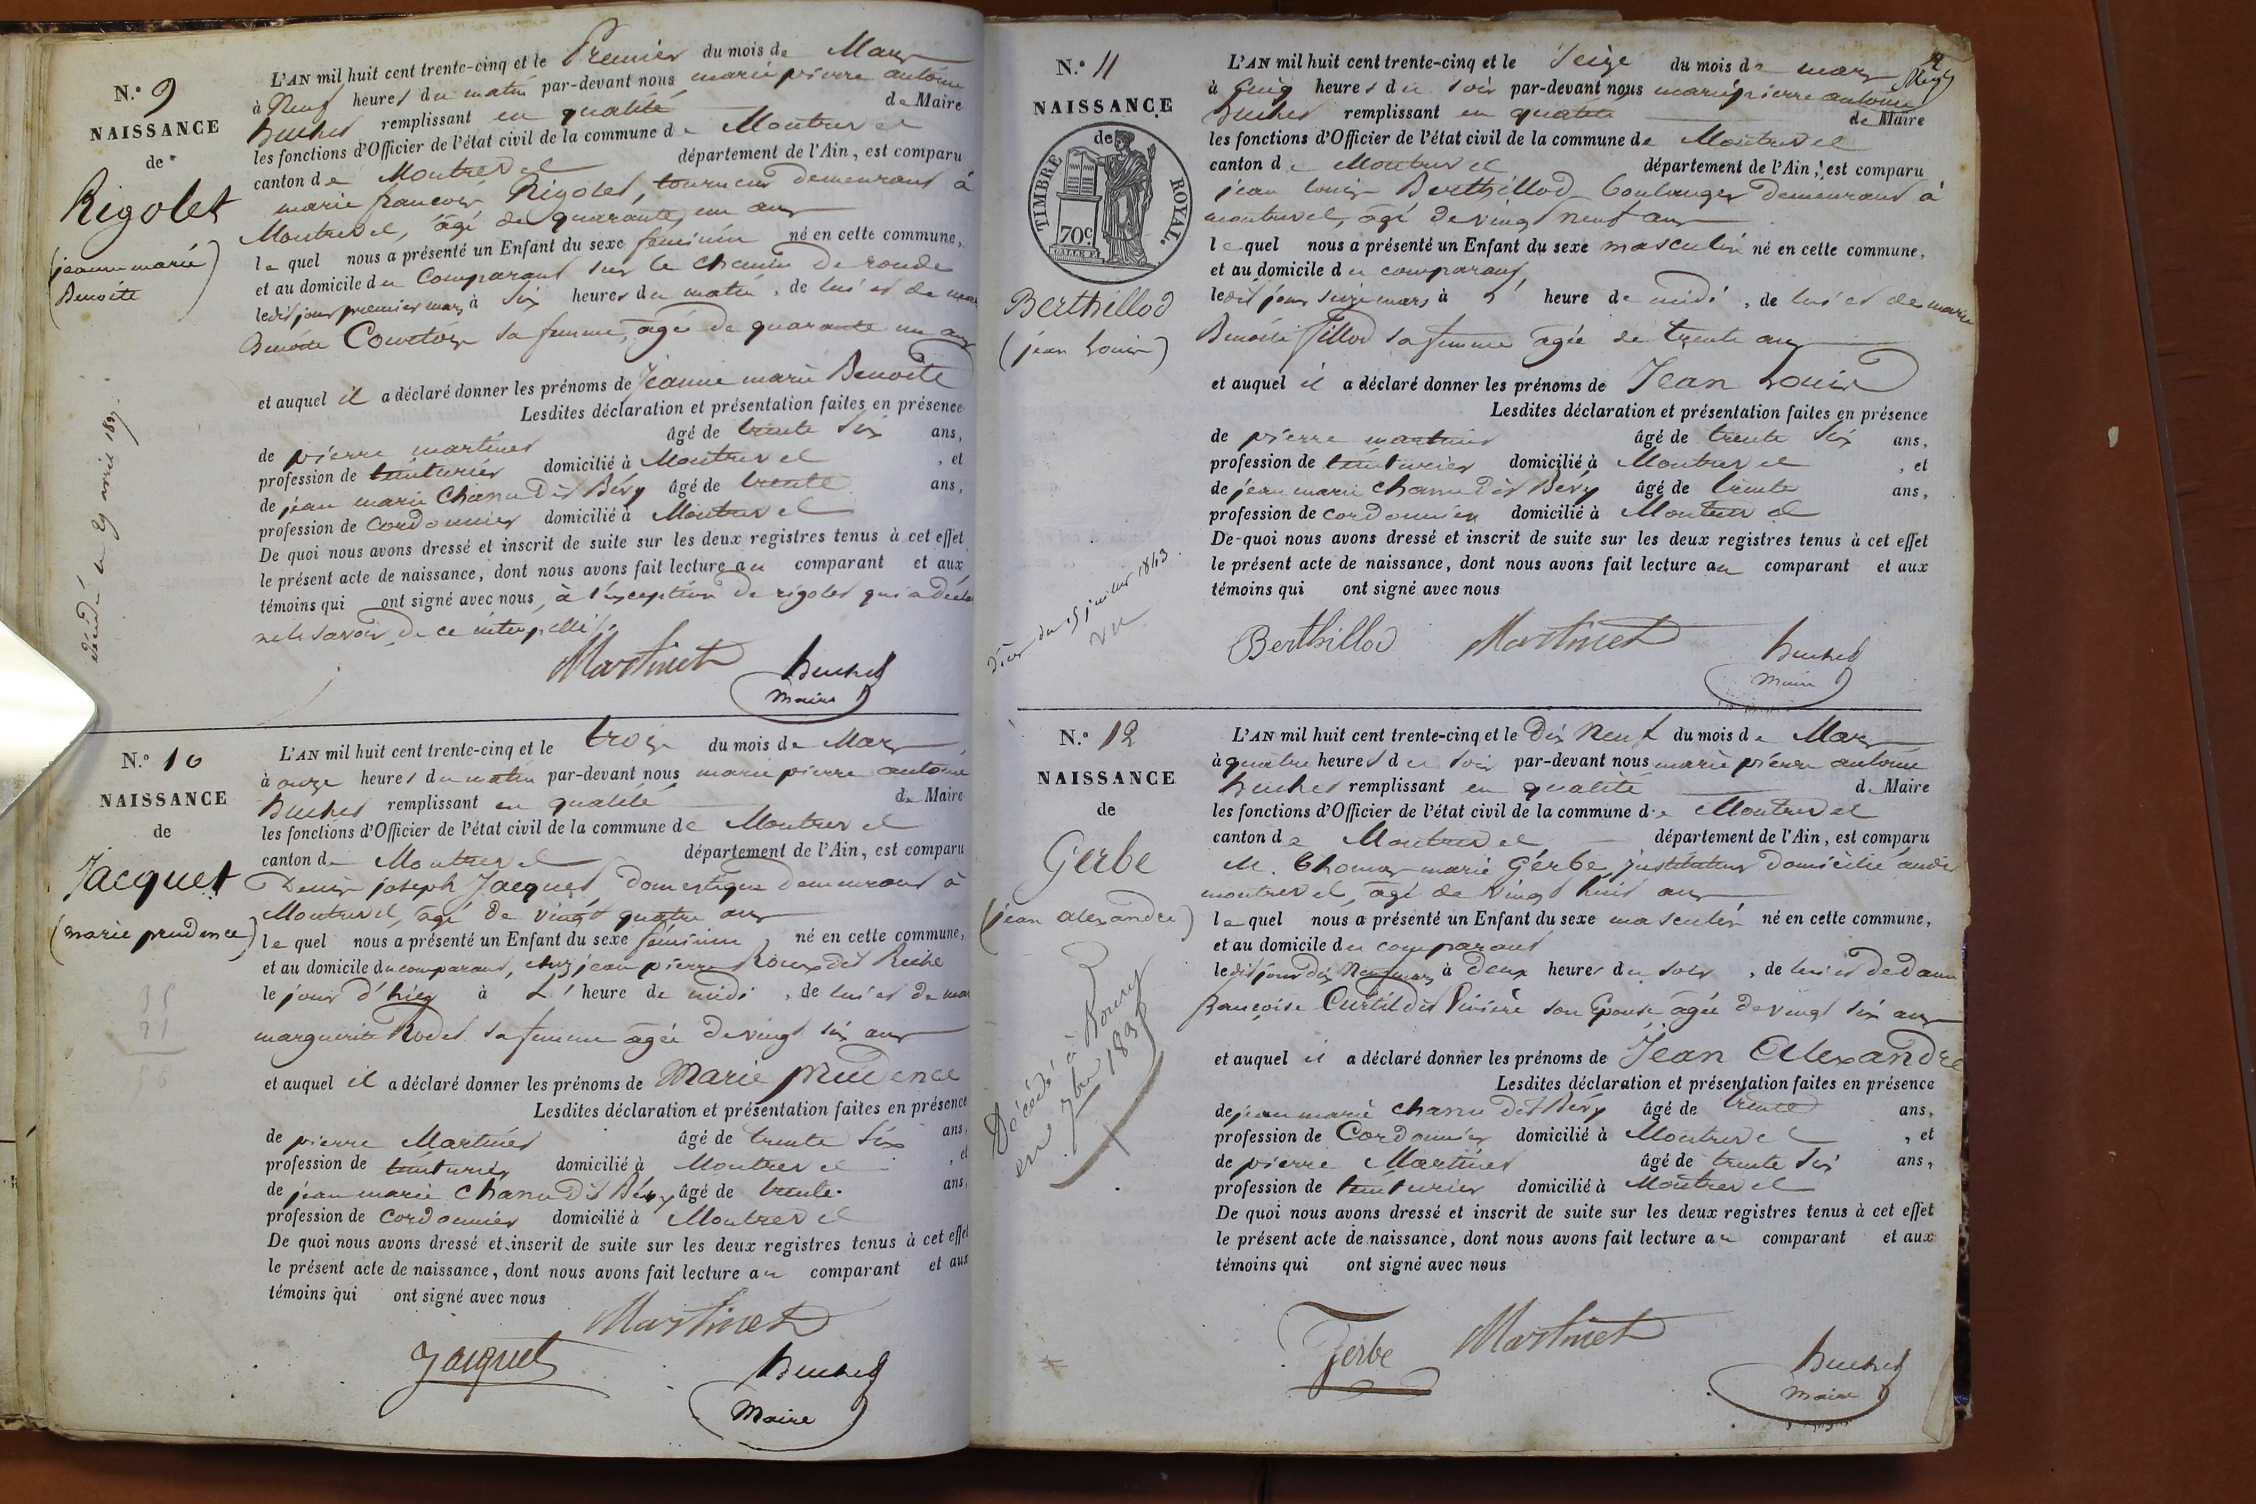 N.° 9
NAISSANCE
de
Rigolet
(jeanne marie
Benoite)
L'AN mil huit cent trente-cinq et le Premier du mois de Mars
à Neuf heures du matin par-devant nous marie pierre antoine
Buchet remplissant en qualité de Maire
les fonctions d'Officier de l'état civil de la commune de Montrevel
canton de Montrevel département de l'Ain, est comparu
marie françois Rigolet, tourneur demeurant à
Montrevel, âgé de quarante un ans
lequel nous a présenté un Enfant du sexe féminin né en cette commune,
et au domicile du comparant sur le chemin de ronde
ledit jour premier mars à six heures du matin, de lui et de marie
Benoite Courtois sa femme, âgée de quarante un ans
et auquel il a déclaré donner les prénoms de Jeanne marie Benoite
Lesdites déclaration et présentation faites en présence
de pierre martinet âgé de trente six ans,
profession de teinturier domicilié à Montrevel, et
de jean marie Chanu dit Bévy âgé de trente ans,
profession de cordonnier domicilié à Montrevel
De quoi nous avons dressé et inscrit de suite sur les deux registres tenus à cet effet
le présent acte de naissance, dont nous avons fait lecture au comparant et aux
témoins qui ont signé avec nous, à l'exception de rigolet qui a déclaré
ne le savoir de ce interpellé.
Martinet Buchet
Maire
N.° 10
NAISSANCE
de
Jacquet
(marie prudence)
L'AN mil huit cent trente-cinq et le trois du mois de Mars
à onze heures du matin par-devant nous marie pierre antoine
Buchet remplissant en qualité de Maire
les fonctions d'Officier de l'état civil de la commune de Montrevel
canton de Montrevel département de l'Ain, est comparu
Denis joseph Jacquet, domestique demeurant à
Montrevel, âgé de vingt quatre ans
lequel nous a présenté un Enfant du sexe féminin né en cette commune,
et au domicile du comparant, chez jean pierre Roux dit
le jour d'hier à L' heure de midi, de lui et de marie
marguerite Rodet sa femme âgée de vingt six ans
et auquel il a déclaré donner les prénoms de Marie prudence
Lesdites déclaration et présentation faites en présence
de pierre Martinet âgé de trente six ans,
profession de teinturier domicilié à Montrevel, et
de jean marie Chanu dit Bévy âgé de trente ans,
profession de cordonnier domicilié à Montrevel
De quoi nous avons dressé et inscrit de suite sur les deux registres tenus à cet effet
le présent acte de naissance, dont nous avons fait lecture au comparant et aux
témoins qui ont signé avec nous
Martinet
Jacquet Buchet
Maire
N.° 11
NAISSANCE
de
TIMBRE ROYAL.
70c
Berthillod
(jean Louis)
L'AN mil huit cent trente-cinq et le Seize du mois de mars
à Cinq heures du soir par-devant nous marie pierre antoine
Buchet remplissant en qualité de Maire
les fonctions d'Officier de l'état civil de la commune de Montrevel
canton de Montrevel département de l'Ain, est comparu
jean louis Berthillod boulanger demeurant à
montrevel, âgé de vingt neuf ans
lequel nous a présenté un Enfant du sexe masculin né en cette commune,
et au domicile du comparant
ledit jour seize mars à L' heure de midi, de lui et de marie
Benoite Tillod sa femme âgée de trente ans
et auquel il a déclaré donner les prénoms de Jean Louis
Lesdites déclaration et présentation faites en présence
de pierre martinet âgé de trente six ans,
profession de teinturier domicilié à Montrevel, et
de jean marie Chanu dit Bévy âgé de trente ans,
profession de cordonnier domicilié à Montrevel
De quoi nous avons dressé et inscrit de suite sur les deux registres tenus à cet effet
le présent acte de naissance, dont nous avons fait lecture au comparant et aux
témoins qui ont signé avec nous
Berthillod Martinet Buchet
Maire
N.° 12
NAISSANCE
de
Gerbe
(jean alexandre)
Décédé à
en 7bre
L'AN mil huit cent trente-cinq et le Dix Neuf du mois de Mars
à quatre heures du soir par-devant nous marie pierre antoine
Buchet remplissant en qualité de Maire
les fonctions d'Officier de l'état civil de la commune de Montrevel
canton de Montrevel département de l'Ain, est comparu
M. Thomas marie Gerbe, instituteur domicilié audit
montrevel, âgé de vingt huit ans
lequel nous a présenté un Enfant du sexe masculin né en cette commune,
et au domicile du comparant
ledit jour dix Neuf mars à deux heures du soir, de lui et de dame
françoise Curtil dit son Epouse âgée de vingt six ans
et auquel il a déclaré donner les prénoms de Jean Alexandre
Lesdites déclaration et présentation faites en présence
de jean marie Chanu dit Bévy âgé de trente ans,
profession de Cordonnier domicilié à Montrevel, et
de pierre Martinet âgé de trente six ans,
profession de teinturier domicilié à Montrevel
De quoi nous avons dressé et inscrit de suite sur les deux registres tenus à cet effet
le présent acte de naissance, dont nous avons fait lecture au comparant et aux
témoins qui ont signé avec nous
Gerbe Martinet Buchet
Maire